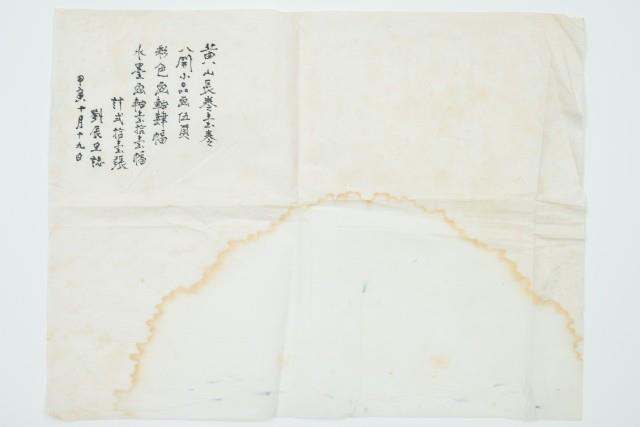 黃山長卷壹卷
八開小品画伍頁
彩色画軸肆幅
水墨画軸壹拾壹幅
計弍拾壹張
劉辰誌
甲寅十月十九日